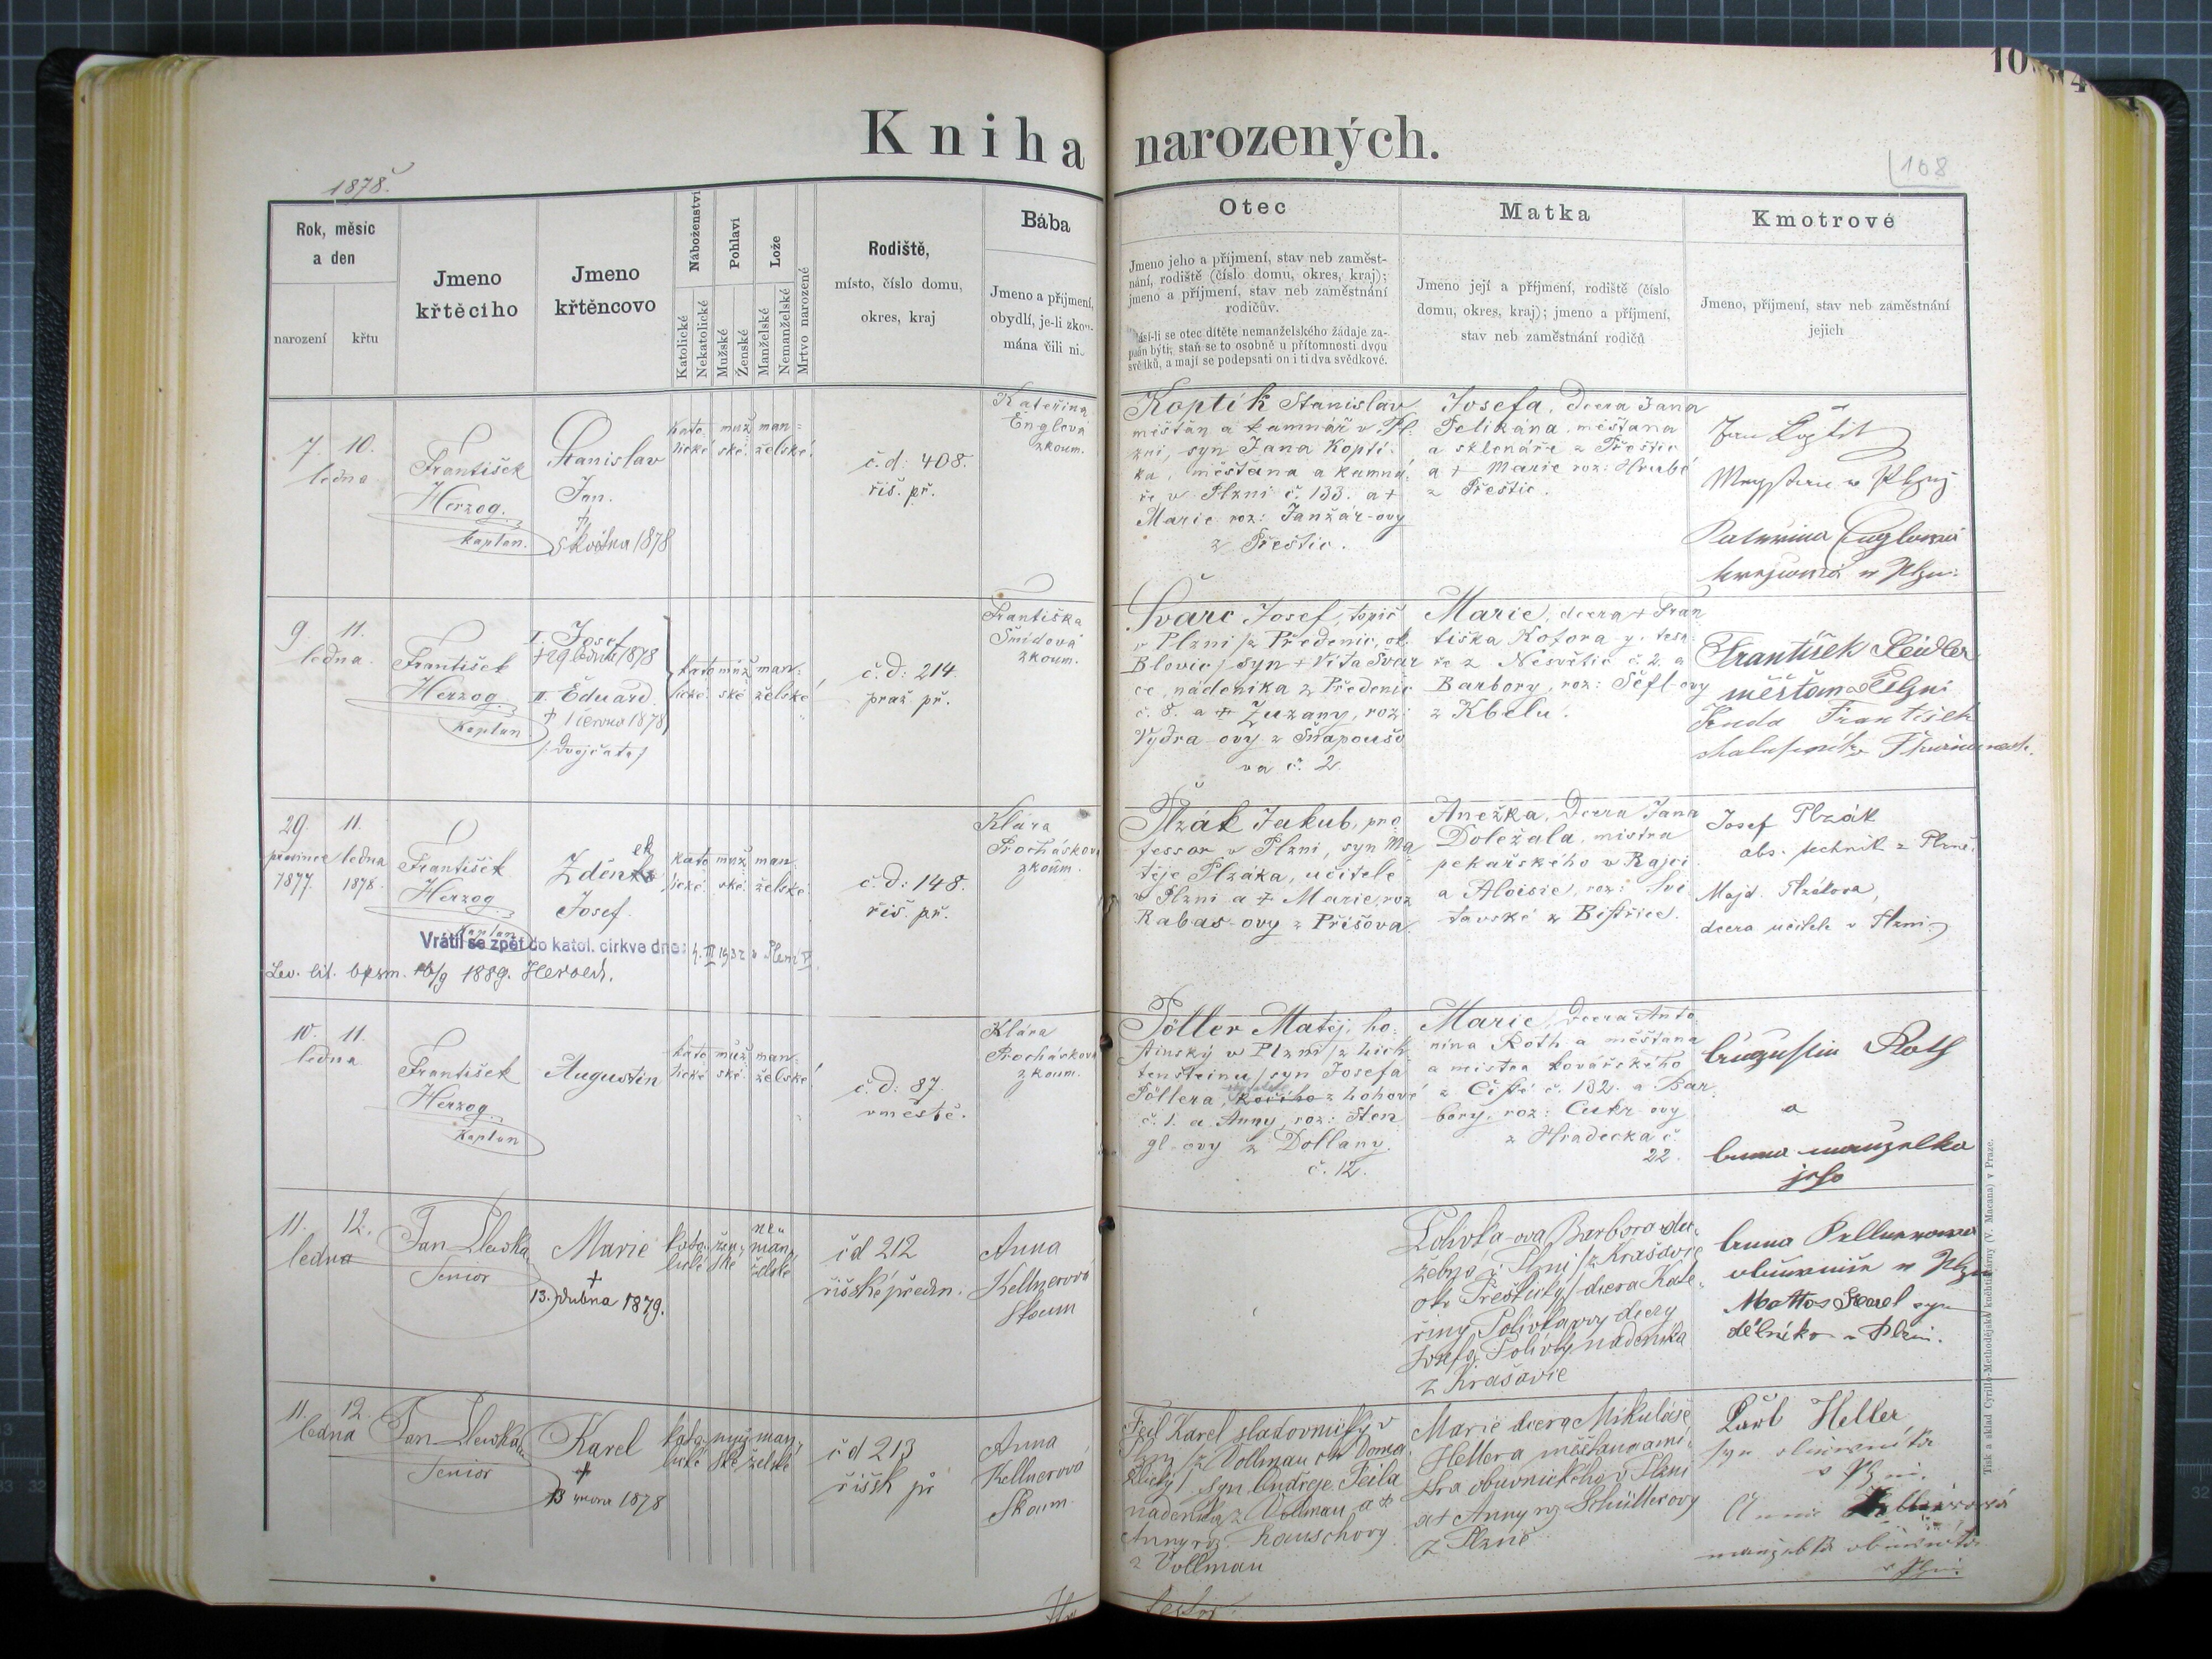 Kniha narozených.
1878.
108
Rok, měsíc
a den
narození
křtu
Jmeno
křtěcího
Jmeno
křtěncovo
Náboženství
Katolické
Nekatolické
Pohlaví
Mužské
Ženské
Lože
Manželské
Nemanželské
Mrtvo narozené
Rodiště,
místo, číslo domu,
okres, kraj
Bába
Jmeno a příjmení,
obydlí, je-li zkou-
mána čili ni
Otec
Jmeno jeho a příjmení, stav neb zaměst-
nání, rodiště (číslo domu, okres, kraj);
jmeno a příjmení, stav neb zaměstnání
rodičův.
Hlásí-li se otec dítěte nemanželského žádaje za-
psán býti; staň se to osobně u přítomnosti dvou
svědků, a mají se podepsati on i ti dva svědkové.
Matka
Jmeno její a příjmení, rodiště (číslo
domu, okres, kraj); jmeno a příjmení,
stav neb zaměstnání rodičů
Kmotrové
Jmeno, příjmení, stav neb zaměstnání
jejich
7. 10.
ledna
František
Herzog.
kaplan.
Stanislav
Jan.
†
5 května 1878
kato muž man=
lické ské. želské.
č.d: 408.
říš. př.
Kateřina
Englová
zkoum.
Koptik Stanislav
měšťan a kamnář v Pl-
zni, syn Jana Koptí-
ka, měšťana a kamná-
ře v Plzni č. 133. a †
Marie roz: Janžár-ovy
z Přeštic.
Josefa, dcera Jana
Pelikána, měšťana
a sklenáře z Přeštic
a † Marie roz: Hrubé
z Přeštic.
9. 11.
ledna.
František
Herzog.
Kaplan
I. Josef
† 29 ledna 1878
II. Eduard
† 1 června 1878
/:Dvojčata/
kato muž man-
lické. ské želské
č.d: 214.
praž. př.
Františka
Šmídová
zkoum.
Švarc Josef, topič
v Plzni /z Předenic, ok.
Blovic/ syn † Víta Švar
ce, nádeníka z Předenic
č. 8. a † Zuzany, roz:
Vydra-ovy z Šňapoušo
va č. 2.
Marie, dcera † Fran
tiška Kotora-y, tesa-
ře z Nesvětic č. 2. a
Barbory, roz: Šefl-ovy
z Kbelu.
František
měšťan v Plzni
František
29. 11.
prosince ledna
1877. 1878.
František
Herzog
Kaplan
Zdeněk
Josef.
kato muž man
lické. ské. želské.
č.d: 148.
říš. př.
Klára
Procházková
zkoum.
Vrátil se zpět do katol. církve dne:
1889.
Plzák Jakub, pro
fessor v Plzni, syn Ma
těje Plzáka, učitele
v Plzni a † Marie, roz
Rabas-ovy z Příšova.
Anežka, dcera Jana
Doležala, mistra
pekařského v Rajci
a Aloisie, roz: Svi
tavské z Bistřice.
Josef Plzák
abs. technik z Plzně.
Majd. Plzákova,
dcera učitele v Plzni
10. 11.
ledna
František
Herzog
Kaplan
Augustin
kato muž man-
lické ské. želské
č.d: 87.
v městě.
Klára
Procházková
zkoum.
Pöller Matěj, ho-
stinský v Plzni /z Lich
tenšteinu/ syn Josefa
Pöllera, z Lohové
č. 1. a Anny, roz: Sten
gl-ovy z Dollany
č. 12.
Marie, dcera Anto-
nína Roth a měšťana
a mistra kovářského
z Čisté č. 132. a Bar
bory, roz: Cukr-ovy
z Hradecka č.
22.
Augustin Roth
a
Anna manželka
jeho
11. 12.
ledna
Jan
Senior
Marie
†
13. dubna 1879.
kato- žen- ne-
lické ské man-
želské
čd 212
říšské předm.
Anna
Kellnerová
Skoum
Polívka-ova Barbora slu-
žebná v Plzni /z Krašovic
okr. Přeštický/ dcera Kate-
řiny Polívkovy dcery
Josefa Polívky nádeníka
z Krašovic
Anna Kellnerowa
v Plzni
Karel syn
dělníka v Plzni.
11. 12.
ledna
Jan
Senior
Karel
†
13 února 1878
kato- muž- man-
lické ské želské
čd 213
říšsk př
Anna
Kellnerová
Skoum
Feil Karel sladovnický v
Plzni /z Vollmau okr Doma
žlický/ syn Ondřeje Feila
nádeníka z Vollmau a †
Anny roz. Rauschovy
z Vollmau
Marie dcera Mikuláše
Hellera měšťana a mi-
stra obuvnického v Plzni
a † Anny roz Schüllerovy
z Plzně
Karl Heller
syn obuvníka
v Plzni.
manželka obuvníka
v Plzni
Tisk a sklad Cyrillo-Methodějské knihtiskárny (V. Macana) v Praze.